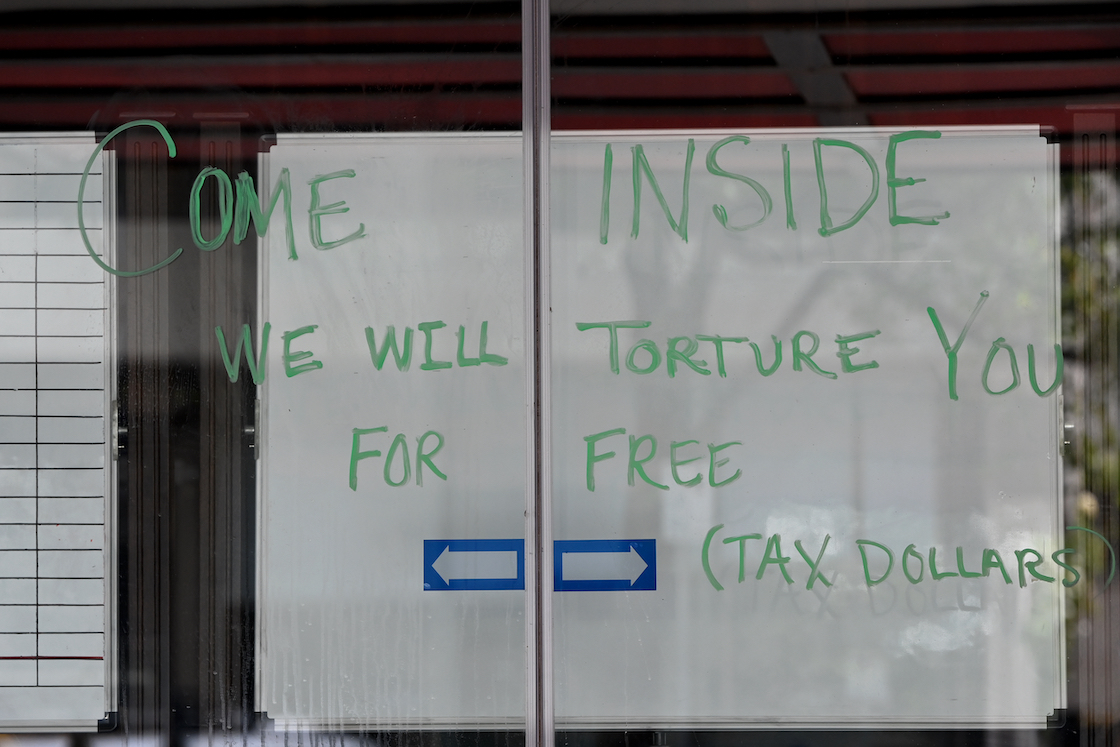 COME INSIDE
WE WILL TORTURE YOU
FOR FREE
(TAX DOLLARS)